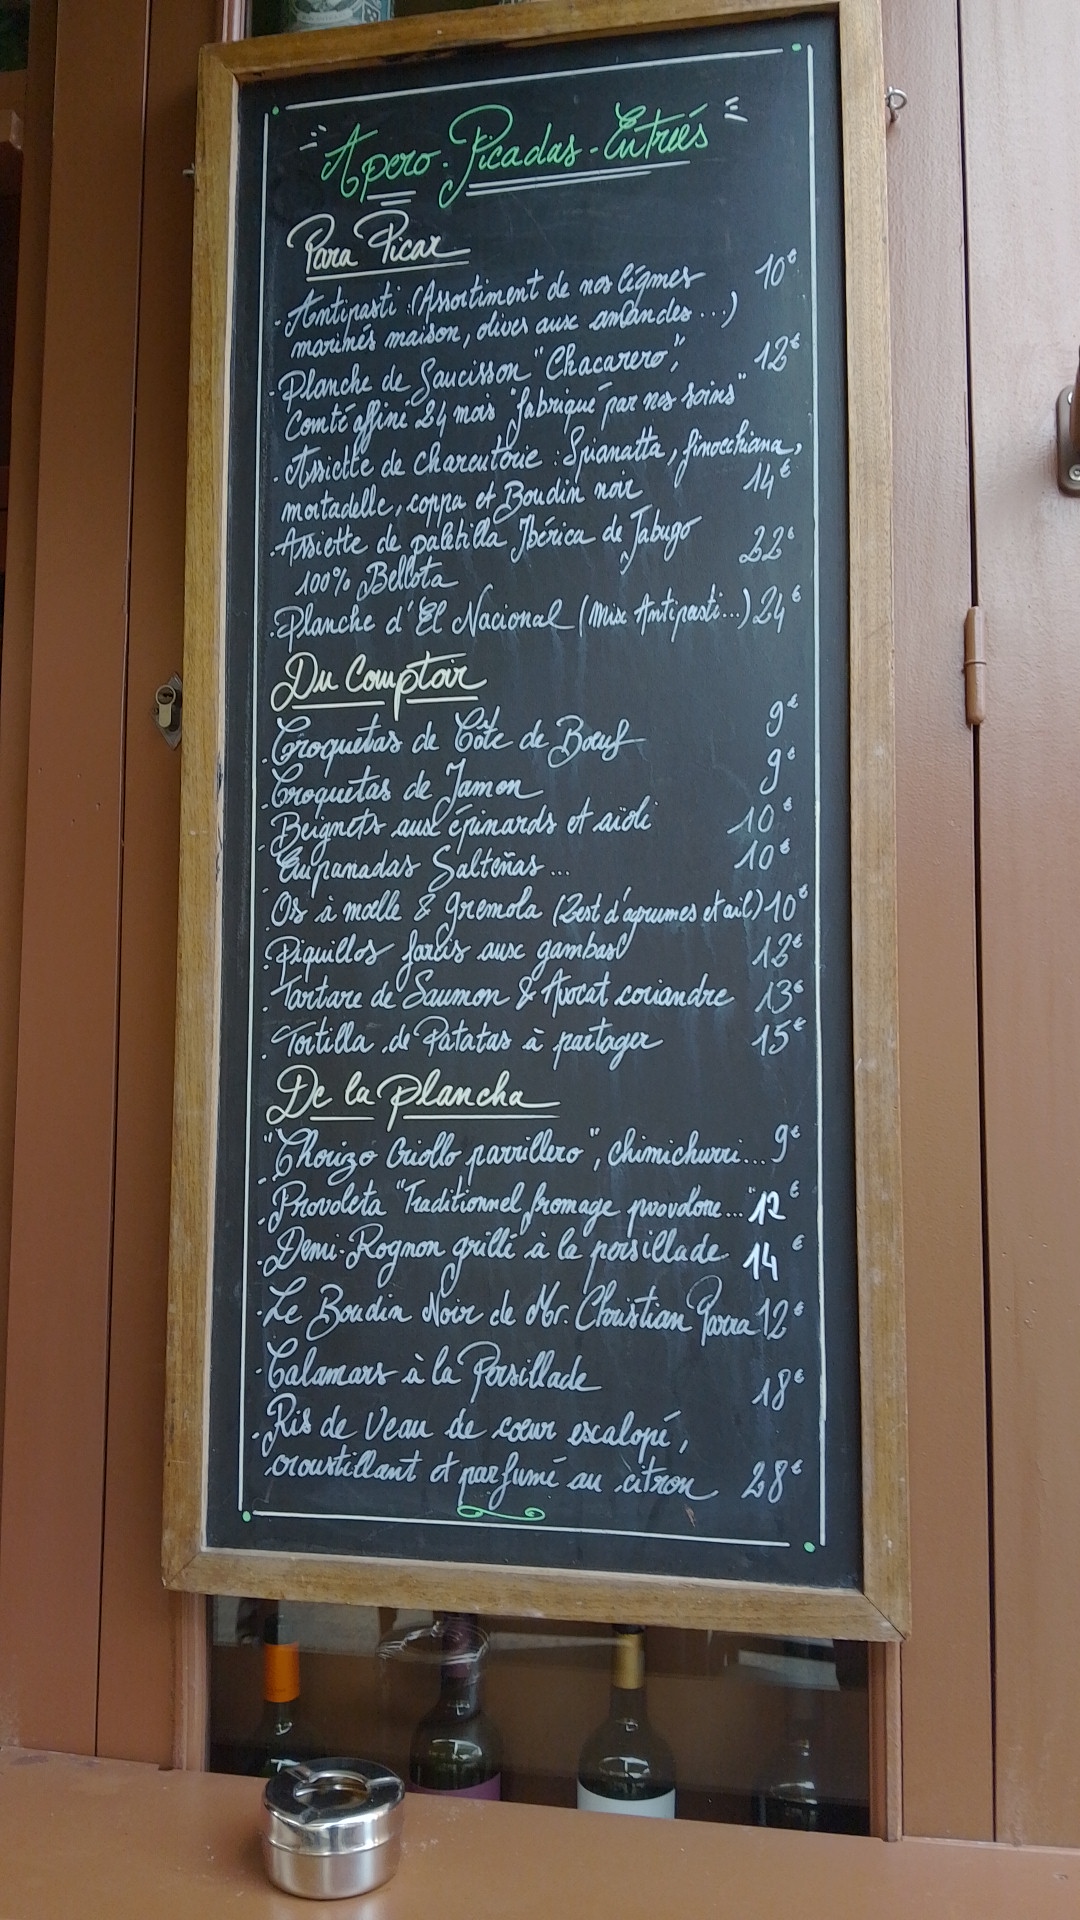 Apero-Picadas-Entrées
Para Picar
- Antipasti (Assortiment de nos légmes 10€
marinés maison, olives aux amandes...)
- Planche de Saucisson "Chacarero", 12€
Comté affiné 24 mois "fabriqué par nos soins"
- Assiette de charcutorie : Spianatta, finocchiana,
mortadelle, coppa et Boudin noir 14€
- Assiette de paletilla Ibérica de Jabugo 22€
100% Bellota
- Planche d'El Nacional (Mix Antipasti...) 24€
Du Comptoir
- Croquetas de Côte de Bœuf 9€
- Croquetas de Jamon 9€
- Beignets aux épinards et aïoli 10€
- Empanadas Salteñas... 10€
- Os à moelle & gremola (Zest d'agrumes et ail) 10€
- Piquillos farcis aux gambas 12€
- Tartare de Saumon & Avocat coriandre 13€
- Tortilla de Patatas à partager 15€
De la plancha
- "Chorizo Criollo parrillero", chimichurri... 9€
- Provoleta "Traditionnel fromage provolone..." 12€
- Demi-Rognon grillé à la persillade 14€
- Le Boudin Noir de Mr. Christian Parra 12€
- Calamars à la Persillade 18€
- Ris de Veau de cœur escalopé,
croustillant et parfumé au citron 28€